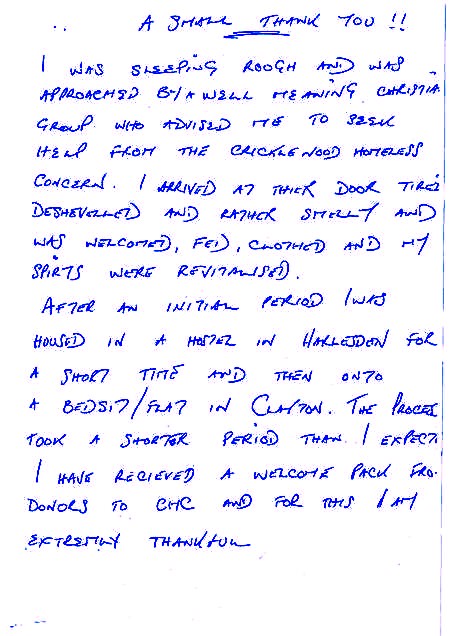 A SMALL THANK YOU !!
I WAS SLEEPING ROUGH AND WAS
APPROACHED BY A WELL MEANING CHRISTIA
GROUP WHO ADVISED ME TO SEEK
HELP FROM THE CRICKLEWOOD HOMELESS
CONCERN. I ARRIVED AT THIER DOOR TIRED
DESHEVELLED AND RATHER SMELLY AND
WAS WELCOMED, FED, CLOTHED AND MY
SPIRTS WERE REVITALISED.
AFTER AN INITIAL PERIOD I WAS
HOUSED IN A HOSTEL IN HARLESDEN FOR
A SHORT TIME AND THEN ONTO
A BEDSIT/FLAT IN CLAYTON. THE PROCES
TOOK A SHORTER PERIOD THAN I EXPECT
I HAVE RECIEVED A WELCOME PACK FRO
DONORS TO CHC AND FOR THIS I AM
EXTREMLY THANKFUL